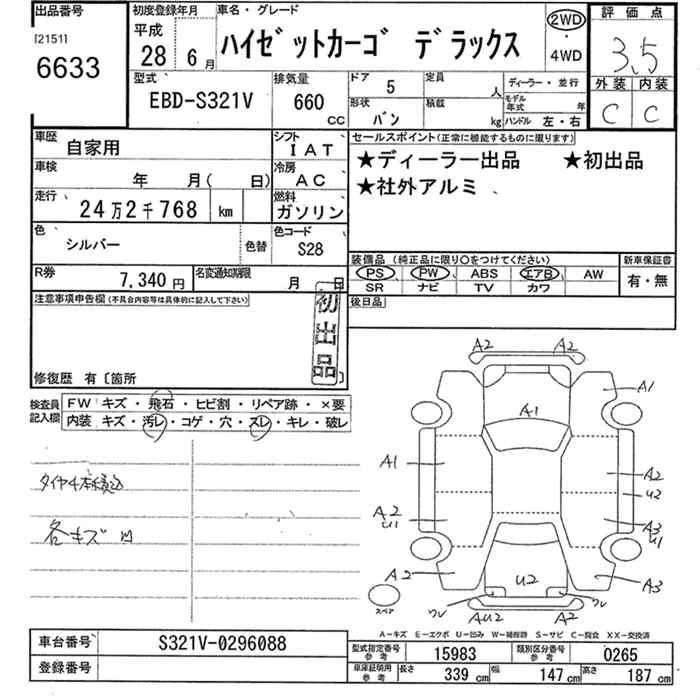 出品番号
[2151]
6633
初度登録年月
平成
28 6月
車名・グレード
ハイゼットカーゴ デラックス
2WD
・
4WD
評価点
3.5
外装 内装
C C
型式
EBD-S321V
排気量
660
cc
ドア 5
定員 人
形状 バン
積載 kg
ディーラー・並行
モデル年式 年
ハンドル 左・右
車歴 自家用
シフト IAT
車検 年 月( 日)
冷房 AC
走行 24万2千768 km
燃料 ガソリン
色 シルバー 色替
色コード S28
R券 7,340円
名変通知期限 月 日
セールスポイント(正常に機能するものに限ります)
★ディーラー出品 ★初出品
★社外アルミ
装備品(純正品に限り○をつけてください)
PS PW ABS エアB AW
SR ナビ TV カワ
新車保証書
有・無
後日品
注意事項申告欄(不具合内容等は具体的に記入して下さい)
初出品
修復歴 有〔箇所 〕
検査員記入欄
FW キズ・飛石・ヒビ割・リペア跡・×要
内装 キズ・汚レ・コゲ・穴・スレ・キレ・破レ
タイヤ4本積込
各キズ凹
A2 A2
A1
A1
A1
A2
U2
A2
U1
A3
U1
A2
U2
A3
ワレ ワレ
AU2 A2
スペア
A-キズ E-エクボ U-凹み W-補修跡 S-サビ C-腐食 XX-交換済
車台番号 S321V-0296088
登録番号
型式指定番号 参考 15983
類別区分番号 参考 0265
車庫証明用 参考 長さ 339cm 幅 147cm 高さ 187cm